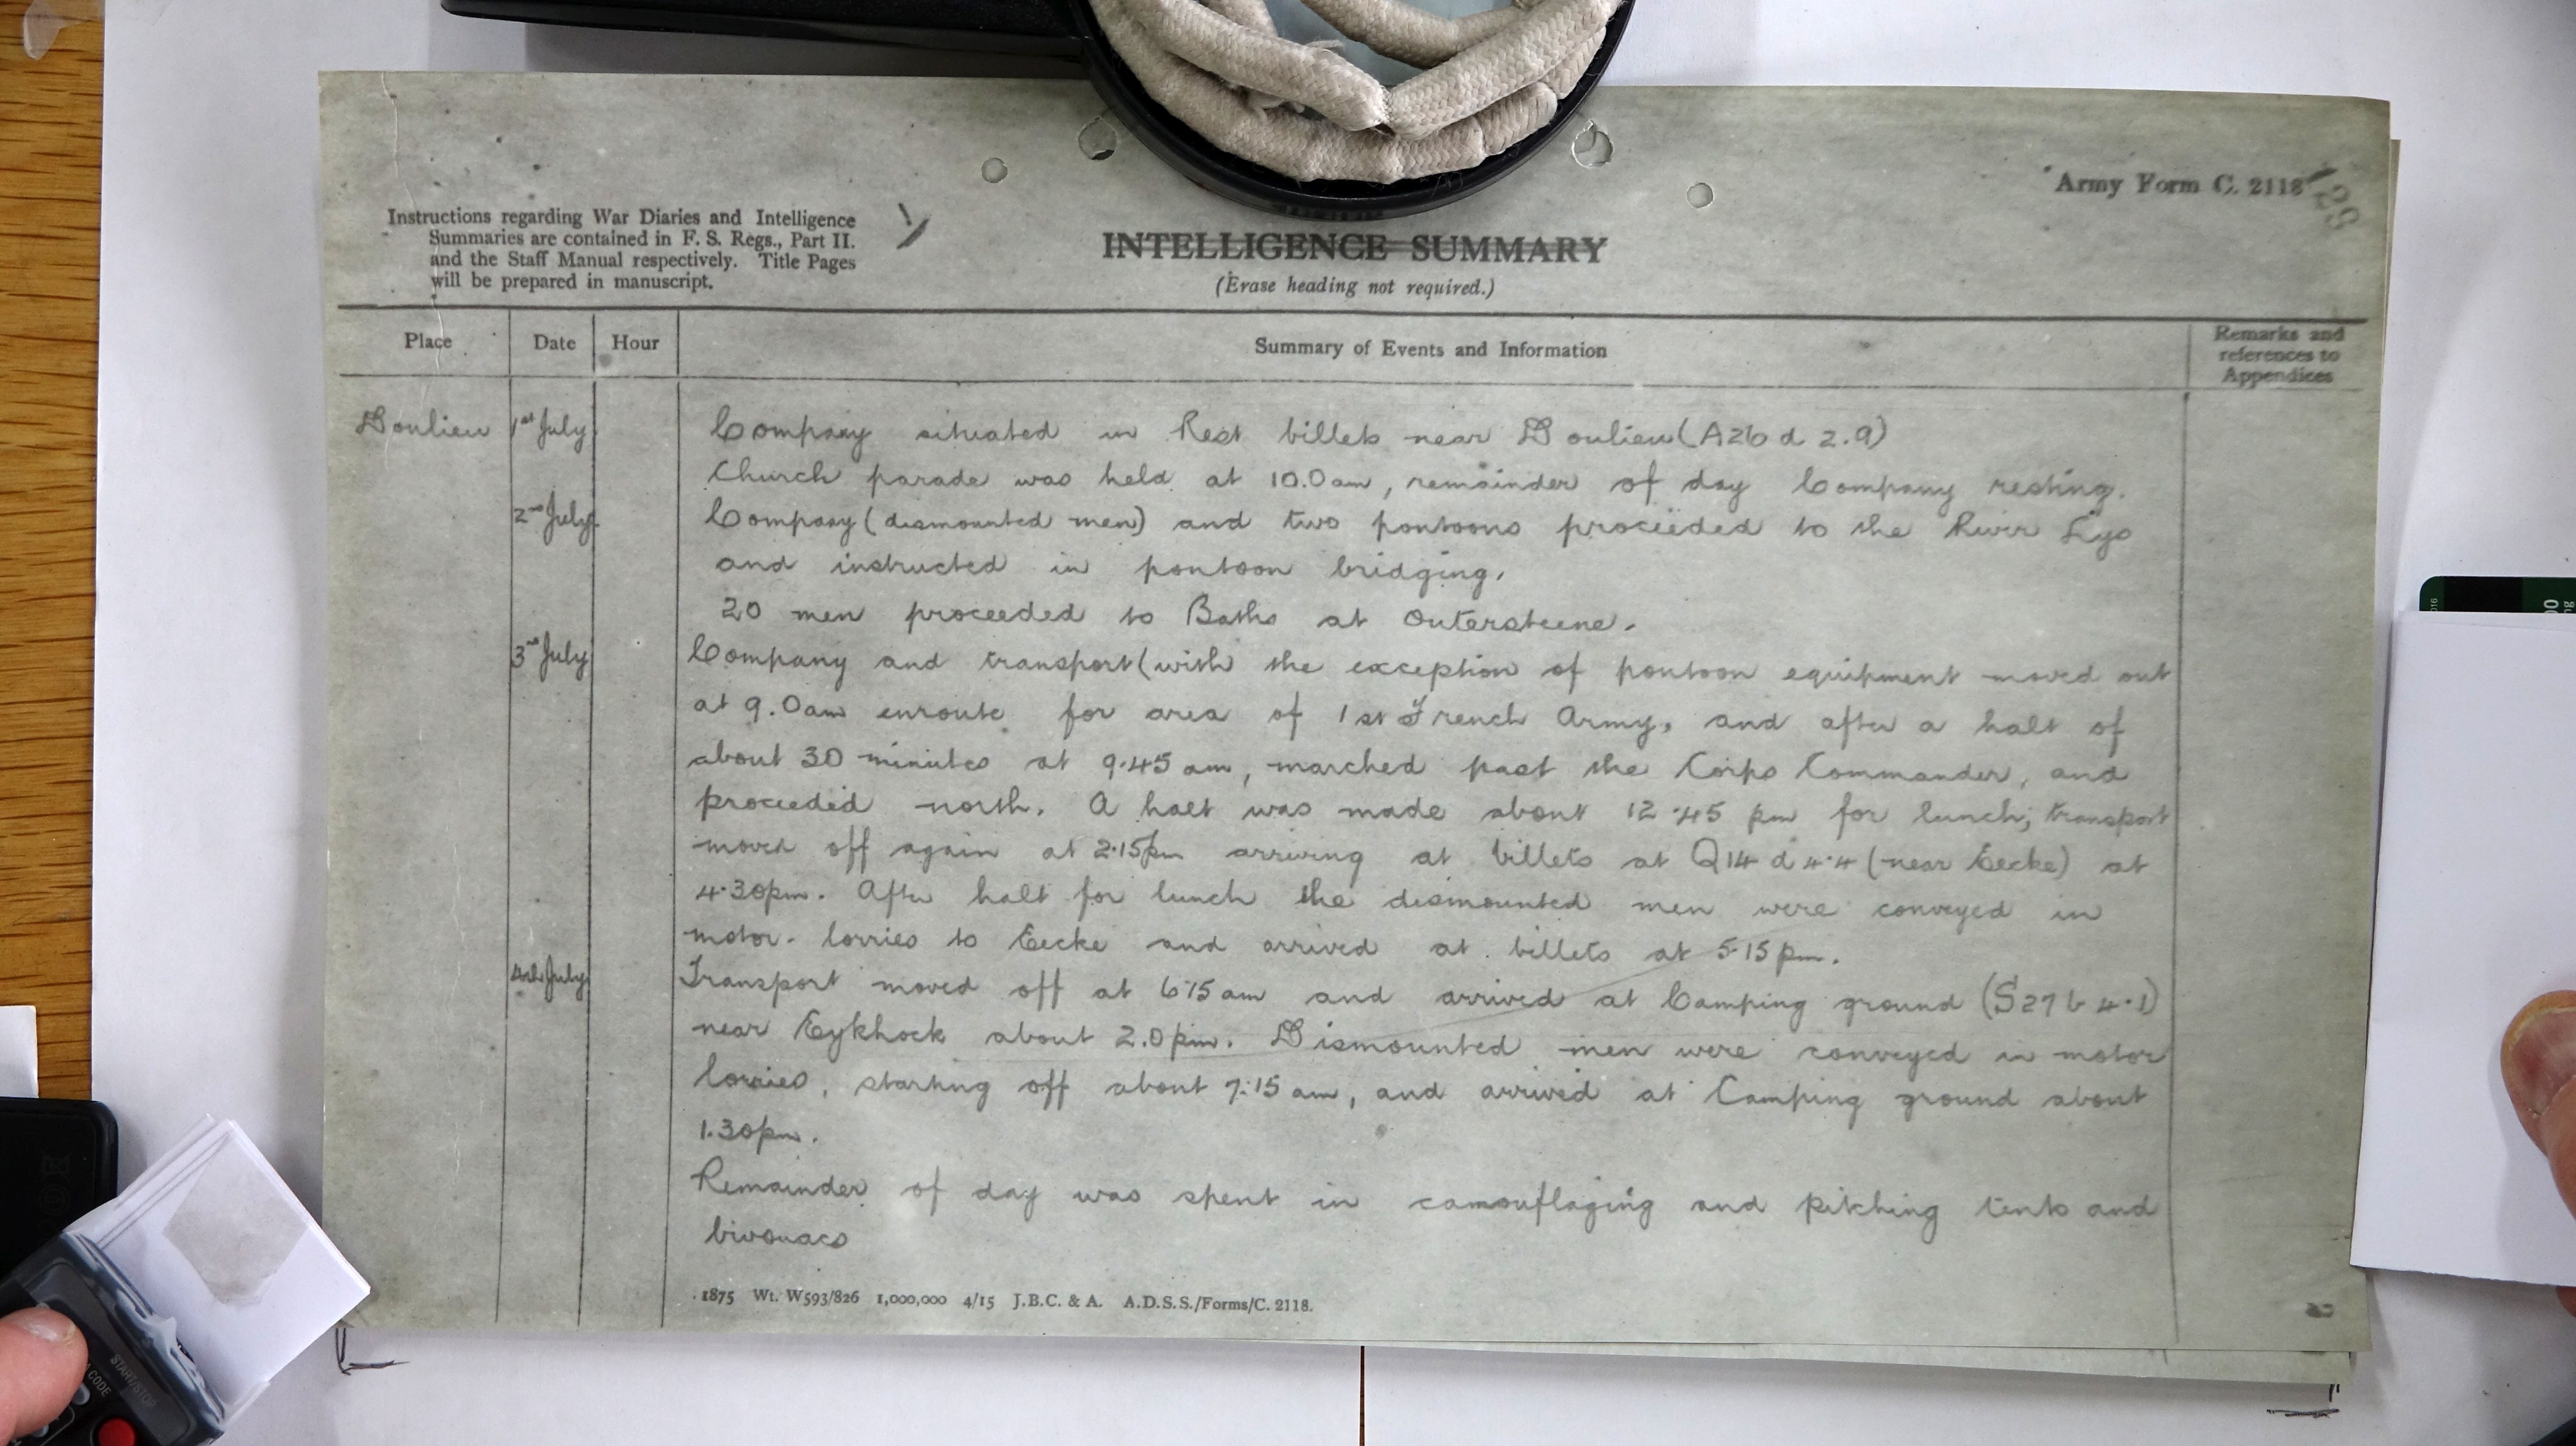 Army Form C. 2118
Instructions regarding War Diaries and Intelligence
Summaries are contained in F. S. Regs., Part II.
and the Staff Manual respectively. Title Pages
will be prepared in manuscript.
INTELLIGENCE SUMMARY
(Erase heading not required.)
Place Date Hour Summary of Events and Information Remarks and
references to
Appendices
Doulieu 1st July Company situated in Rest billets near Doulieu (A26 d 2.9)
Church parade was held at 10.0am, remainder of day Company resting.
2nd July Company (dismounted men) and two pontoons proceeded to the River Lys
and instructed in pontoon bridging.
20 men proceeded to Baths at Outersteene.
3rd July Company and transport (with the exception of pontoon equipment moved out
at 9.0am enroute for area of 1st French Army, and after a halt of
about 30 minutes at 9.45 am, marched past the Corps Commander, and
proceeded north. A halt was made about 12.45 pm for lunch; transport
moved off again at 2.15pm arriving at billets at Q14 d 4.4 (near Eecke) at
4.30pm. After halt for lunch the dismounted men were conveyed in
motor-lorries to Eecke and arrived at billets at 5.15 pm.
4th July Transport moved off at 6.15 am and arrived at Camping ground (S27 b 4.1)
near Eykhock about 2.0 pm. Dismounted men were conveyed in motor
lorries, starting off about 7.15 am, and arrived at Camping ground about
1.30pm.
Remainder of day was spent in camouflaging and pitching tents and
bivouacs
1875 Wt. W593/826 1,000,000 4/15 J.B.C. & A. A.D.S.S./Forms/C. 2118.
START/STOP
CODE